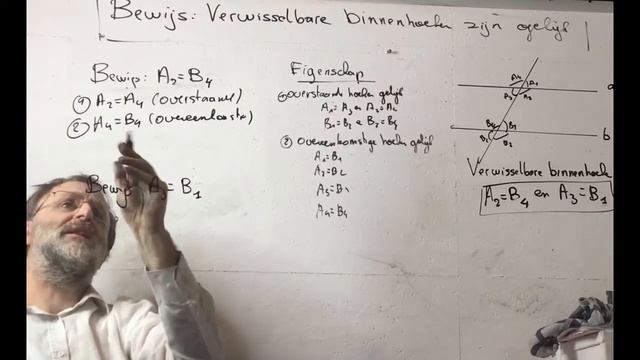 Bewijs: Verwisselbare binnenhoeken zijn gelijk
Bewijs: A₂=B₄
① A₂=A₄ (overstaande)
② A₄=B₄ (overeenkomstige)
Bewijs A₃=B₁
Eigenschap
① overstaande hoeken gelijk
A₁=A₃ en A₂=A₄
B₁=B₃ e B₂=B₄
② overeenkomstige hoeken gelijk
A₁=B₁
A₂=B₂
A₃=B₃
A₄=B₄
A₄ A₁
A₃ A₂
a
B₄ B₁
b
Verwisselbare binnenhoeken
A₂=B₄ en A₃=B₁